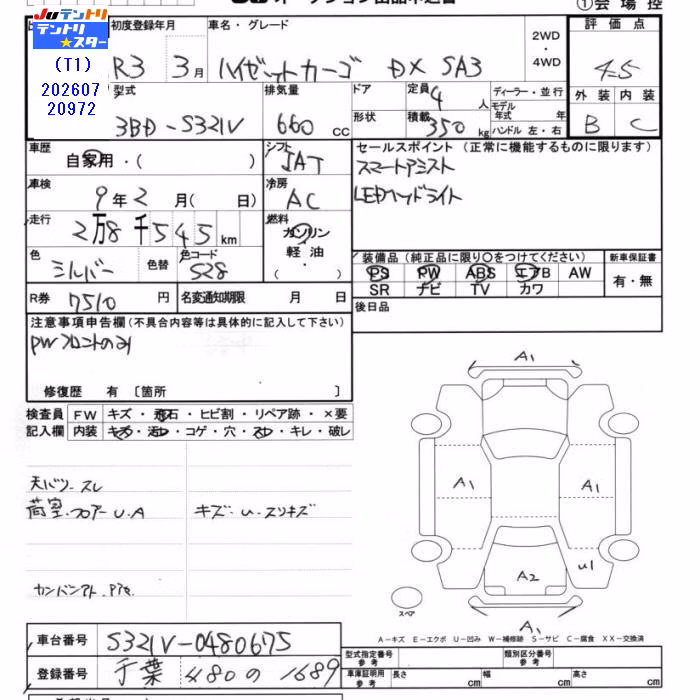 ①会場控
JUテントリ
テントリ
★スター
(T1)
202607
20972
初度登録年月
車名・グレード
R3 3月
ハイゼットカーゴ DX SA3
2WD
・
4WD
評価点
4.5
外装 内装
B C
型式
3BD-S321V
排気量
660 cc
ドア
形状
定員 4 人
積載 350 kg
ディーラー・並行
モデル
年式 年
ハンドル 左・右
車歴
自家用・( )
シフト
IAT
車検
9年2月( 日)
冷房
AC
走行
2万8千545km
燃料
ガソリン
軽油
( )
色
シルバー
色替
色コード
S28
R券 7510 円
名変通知期限 月 日
セールスポイント (正常に機能するものに限ります)
スマートアシスト
LEDヘッドライト
装備品 (純正品に限り○をつけてください)
PS PW ABS エアB AW
SR ナビ TV カワ
新車保証書
有・無
後日品
注意事項申告欄(不具合内容等は具体的に記入して下さい)
PWフロントのみ
修復歴 有 〔箇所 〕
検査員 FW キズ・飛石・ヒビ割・リペア跡・×要
記入欄 内装 キズ・汚レ・コゲ・穴・スレ・キレ・破レ
天バリ.スレ
荷室.フロアーU.A
キズ.U.スリキズ
カンバンアト.Pアセ
A1
A1
A1
A2
U1
A1
スペア
A-キズ E-エクボ U-凹み W-補修跡 S-サビ C-腐食 XX-交換済
車台番号 S321V-0480675
登録番号 千葉 480の1689
型式指定番号
参考
類別区分番号
参考
車庫証明用
参考
長さ cm 幅 cm 高さ cm